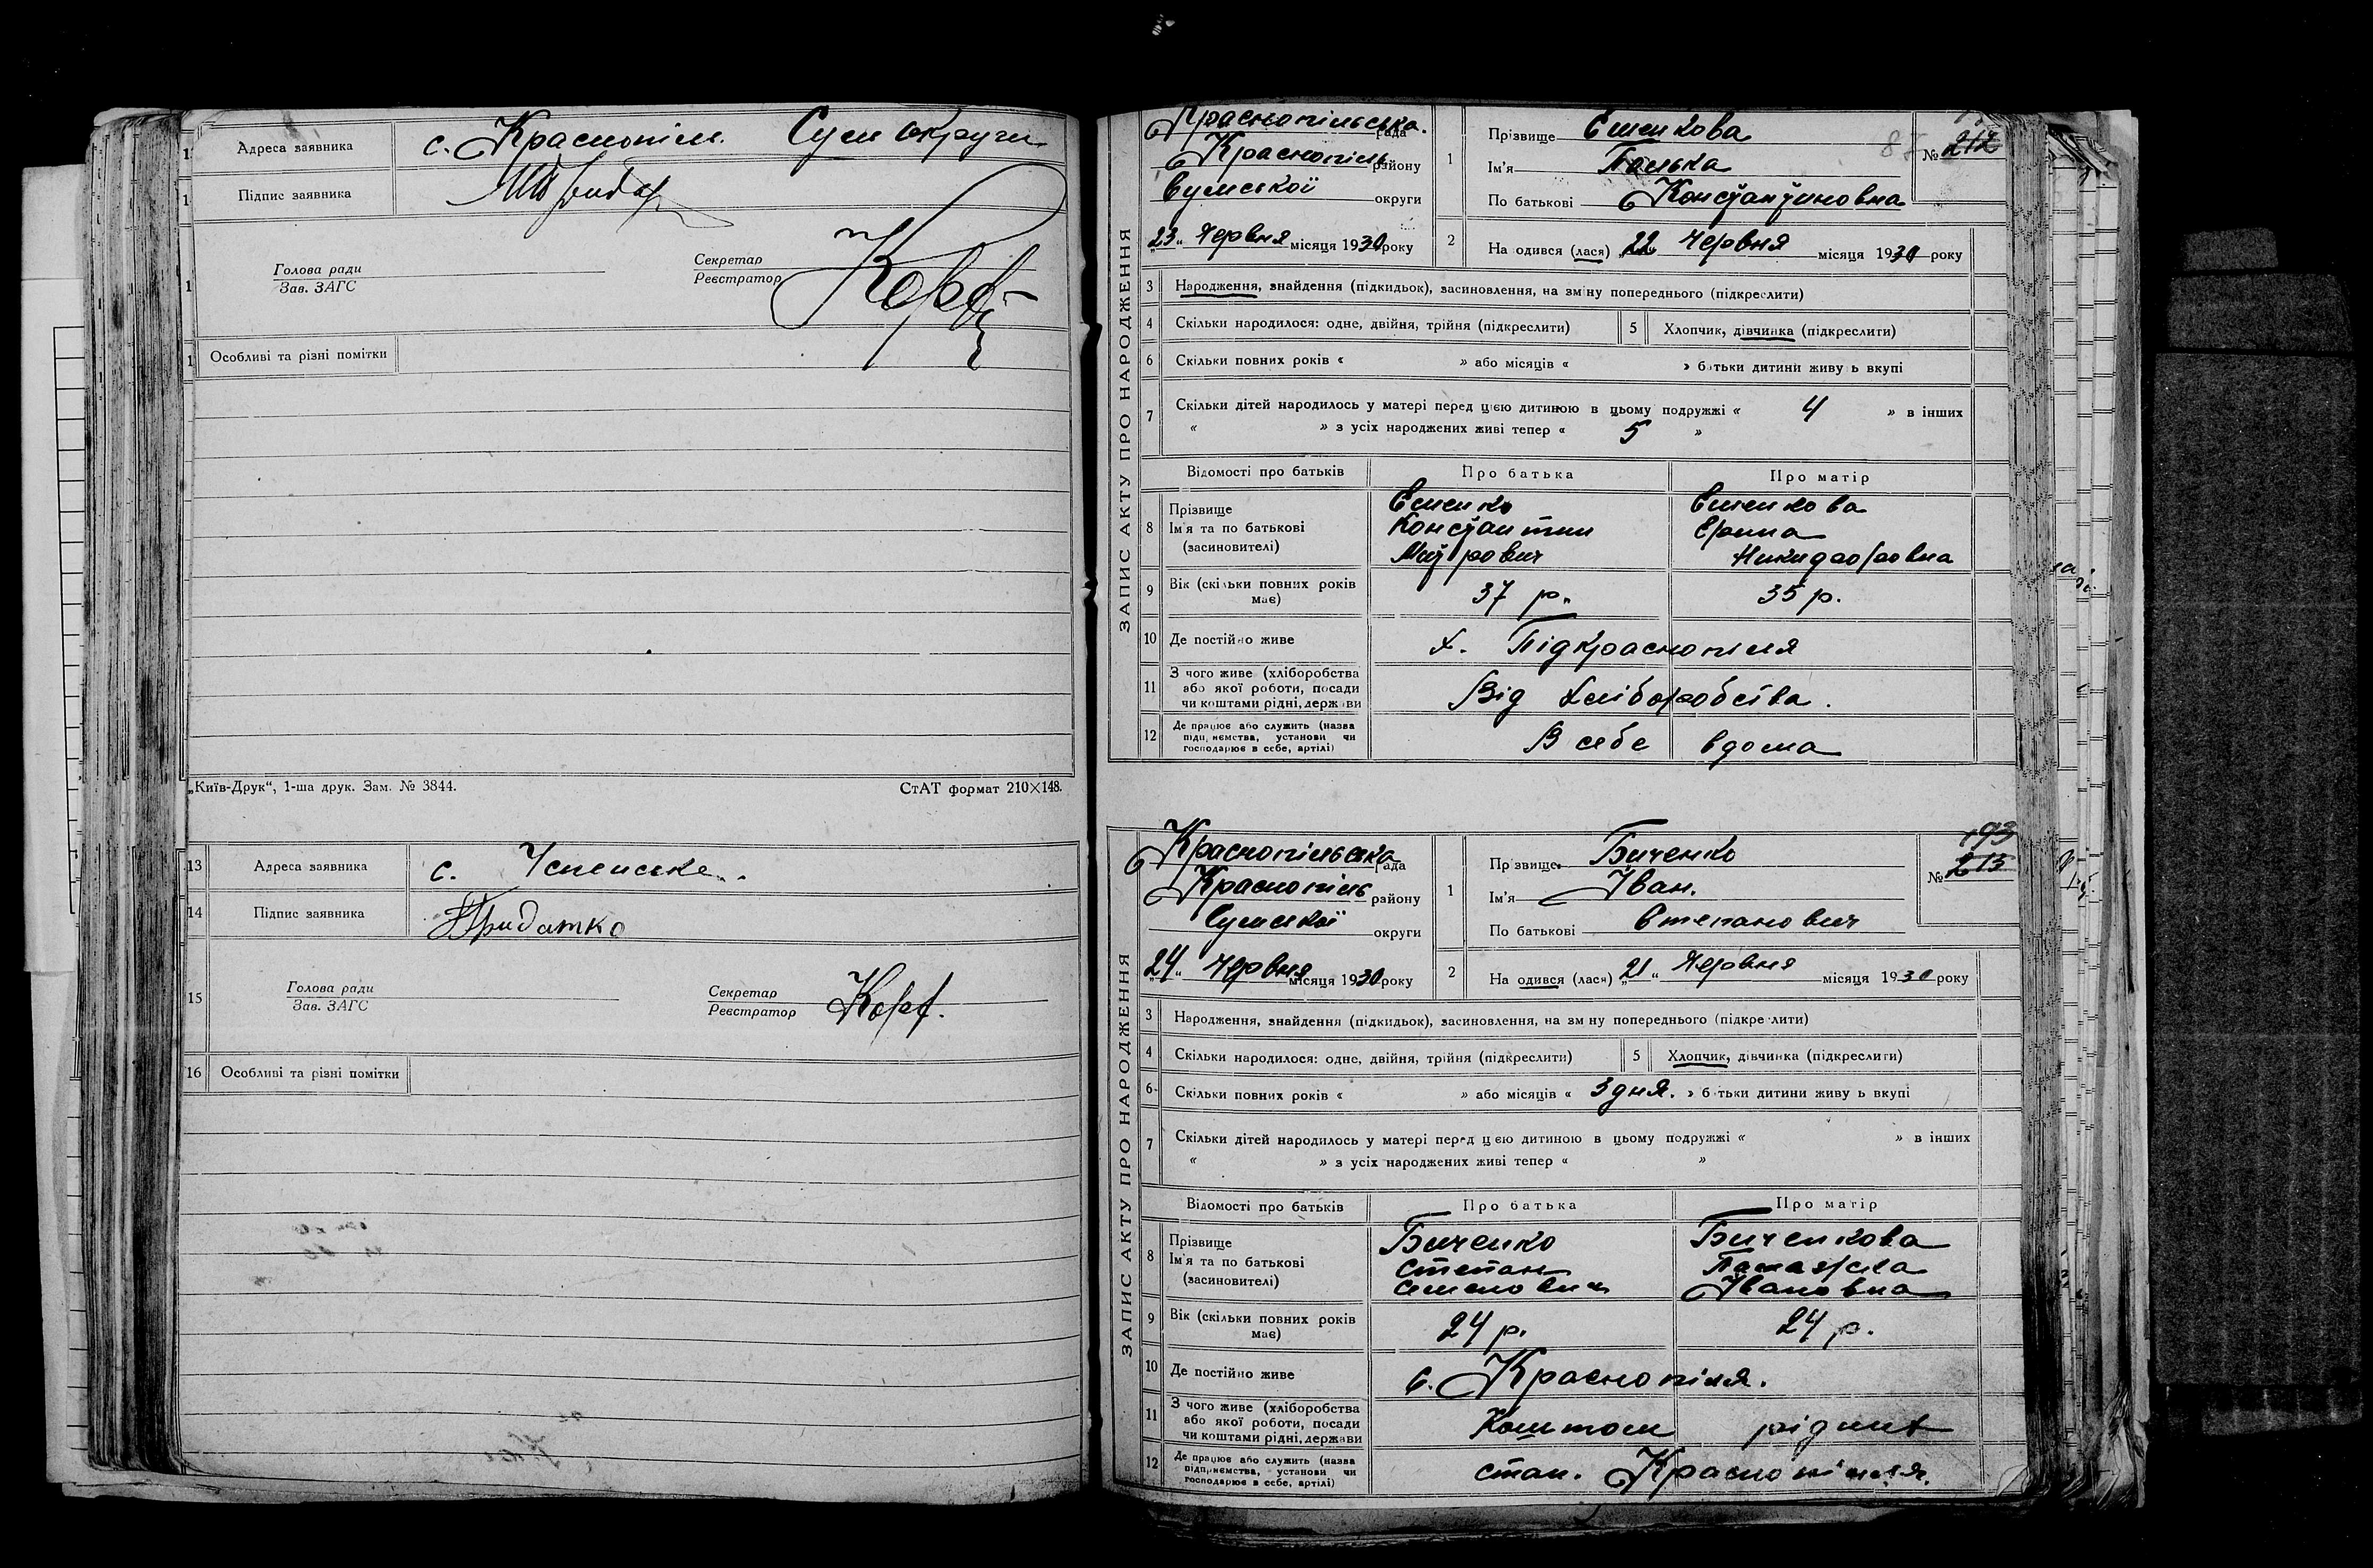 Адреса заявника с. Краснопілля. Сум округи
Підпис заявника
Голова ради
Зав. ЗАГС
Секретар
Реєстратор
Особливі та різні помітки
„Київ-Друк“, 1-ша друк. Зам. № 3844. СтАТ формат 210×148.
13 Адреса заявника с. Успенське.
14 Підпис заявника Придатко
15 Голова ради
Зав. ЗАГС
Секретар
Реєстратор
16 Особливі та різні помітки
ЗАПИС АКТУ ПРО НАРОДЖЕННЯ
Краснопільська рада
Краснопіль району
Сумської округи
„23“ Червня місяця 1930 року
1 Прізвище Єшенкова
Ім'я Палька
По батькові Константиновна
№ 212
87
2 На одився (лася) „22“ Червня місяця 1930 року
3 Народження, знайдення (підкидьок), засиновлення, на зміну попереднього (підкреслити)
4 Скільки народилося: одне, двійня, трійня (підкреслити) 5 Хлопчик, дівчинка (підкреслити)
6 Скільки повних років « » або місяців « » батьки дитини живу ь вкупі
7 Скільки дітей народилось у матері перед цією дитиною в цьому подружжі « 4 » в інших
« » з усіх народжених живі тепер « 5 »
Відомості про батьків Про батька Про матір
8 Прізвище Єшенко Єшенкова
Ім'я та по батькові Константин Єрина
(засиновителі) Митрович Никидфоровна
9 Вік (скільки повних років має) 37 р. 35 р.
10 Де постійно живе х. Підкраснопілля
11 З чого живе (хліборобства
або якої роботи, посади
чи коштами рідні, держави Від хліборобства.
12 Де працює або служить (назва
підприємства, установи чи
господарює в себе, артілі) В себе вдома
ЗАПИС АКТУ ПРО НАРОДЖЕННЯ
Краснопільська рада
Краснопіль району
Сумської округи
„24“ Червня місяця 1930 року
1 Пр звище Биченко
Ім'я Іван.
По батькові Степанович
193
№ 213
2 На одився (лася) „21“ Червня місяця 1930 року
3 Народження, знайдення (підкидьок), засиновлення, на зм ну попереднього (підкре лити)
4 Скільки народилося: одне, двійня, трійня (підкреслити) 5 Хлопчик, дівчинка (підкреслити)
6 Скільки повних років « » або місяців « 3 дня. » б тьки дитини живу ь вкупі
7 Скільки дітей народилось у матері перед цією дитиною в цьому подружжі « » в інших
« » з усіх народжених живі тепер « »
Відомості про батьків Про батька Про матір
8 Прізвище Биченко Биченкова
Ім'я та по батькові Степан
(засиновителі) Семенович Івановна
9 Вік (скільки повних років має) 24 р. 24 р.
10 Де постійно живе с. Краснопілля.
11 З чого живе (хліборобства
або якої роботи, посади
чи коштами рідні, держави Коштом рідних
12 Де працює або служить (назва
підприємства, установи чи
господарює в себе, артілі) стан. Краснопілля.